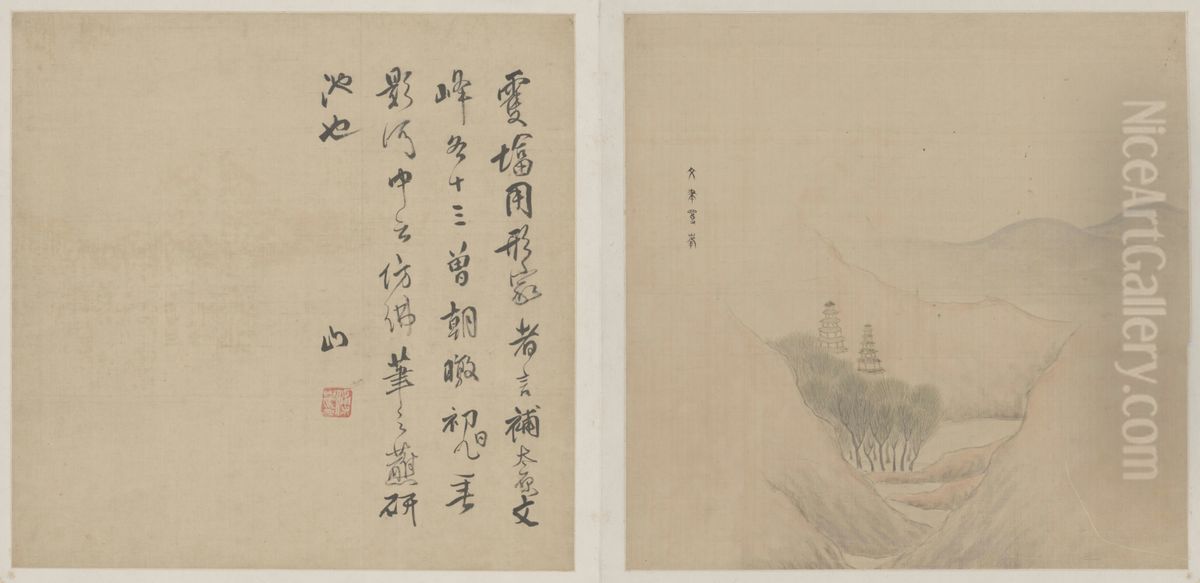 䨇墖用形家者言補太原文
峰各十三曾朝暾初旭垂
影河中云仿佛筆之蘸研
池也
山
文聿雙峯
NiceArtGallery.com